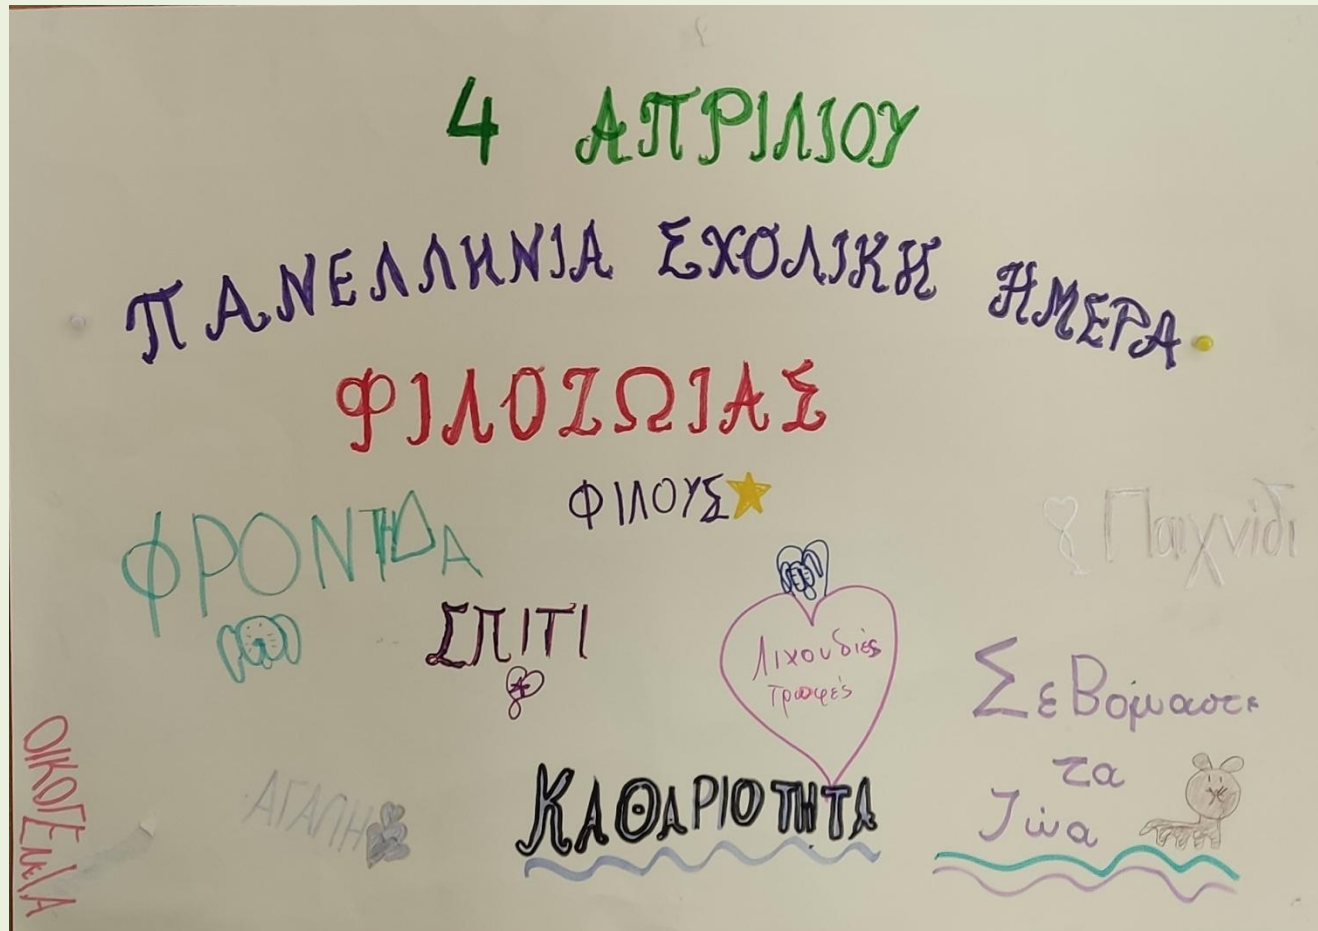 4 ΑΠΡΙΛΙΟΥ
ΠΑΝΕΛΛΗΝΙΑ ΣΧΟΛΙΚΗ ΗΜΕΡΑ
ΦΙΛΟΖΩΙΑΣ
ΦΙΛΟΥΣ
ΦΡΟΝΤΗΔΑ
Παιχνίδι
ΣΠΙΤΙ
Λιχουδιές
τροφές
Σεβόμαστε
τα
Ζώα
ΚΑΘΑΡΙΟΤΗΤΑ
ΑΓΑΠΗ